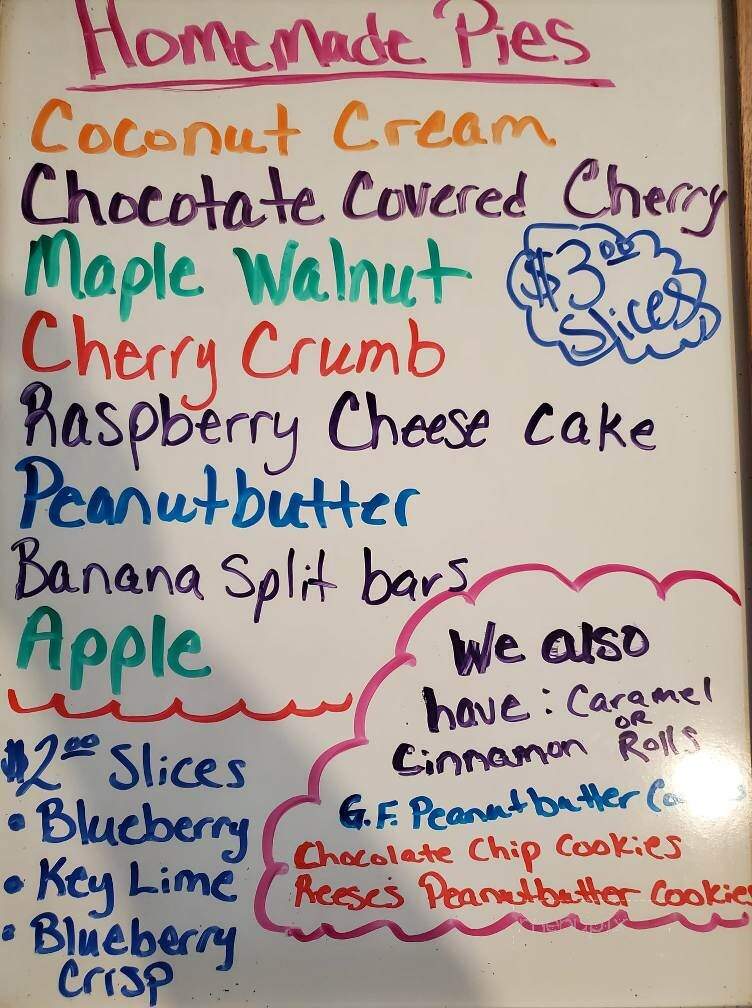 Homemade Pies
Coconut Cream
Chocotate Covered Cherry
Maple Walnut
$3.00
Slices
Cherry Crumb
Raspberry Cheese cake
Peanutbutter
Banana Split bars
Apple
$2.00 Slices
• Blueberry
• Key Lime
• Blueberry
Crisp
We also
have : Caramel
OR
Cinnamon Rolls
G.F. Peanutbutter
Chocolate Chip Cookies
Reese's Peanutbutter Cookies